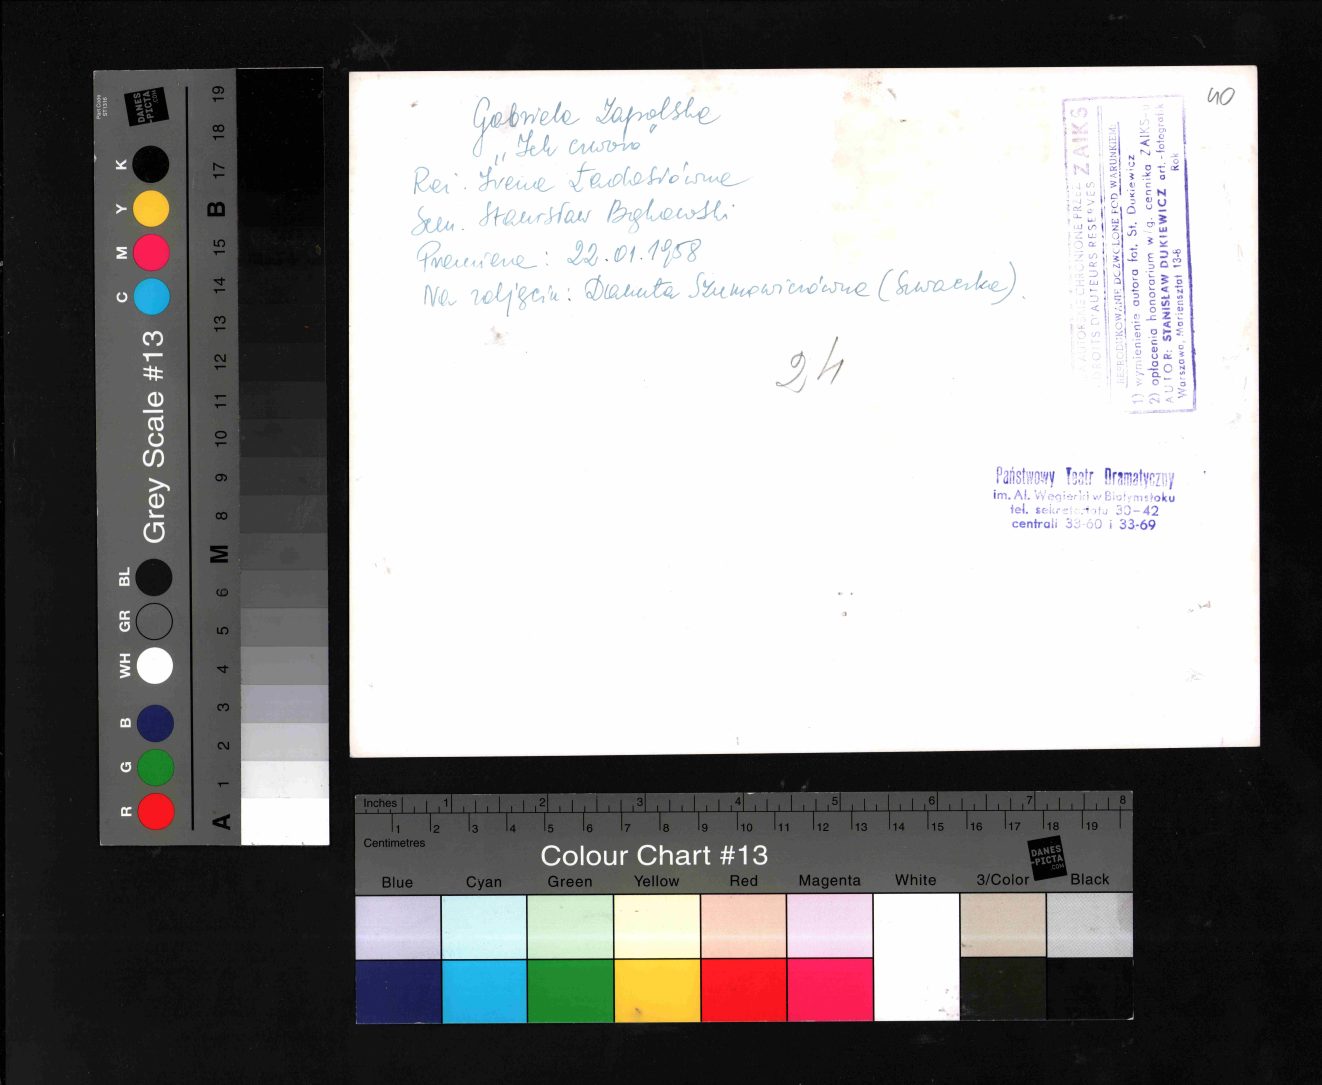 Gabriela Zapolska
„Ich czworo"
Reż. Irena Ładosiówna
Scen. Stanisław Bąkowski
Premiera: 22.01.1958
Na zdjęciu: Danuta Szumowiczówna (Szwaczka).
24
40
CHRONIONE PRZEZ ZAIKS
DROITS D'AUTEURS RESERVES
REPRODUKOWANIE DOZWOLONE POD WARUNKIEM:
1) wymienienie autora fot. St. Dukiewicz
2) opłacenia honorarium w/g. cennika ZAIKS-u
AUTOR: STANISŁAW DUKIEWICZ art.-fotografik
Warszawa, Mariensztat 13-8 Rok
Państwowy Teatr Dramatyczny
im. Al. Węgierki w Białymstoku
tel. sekretariatu 30-42
centrali 33-60 i 33-69
Part Code
ST1316
DANES
-PICTA
.COM
Grey Scale #13
R G B WH GR BL C M Y K
A 1 2 3 4 5 6 M 8 9 10 11 12 13 14 15 B 17 18 19
Inches 1 2 3 4 5 6 7 8
Centimetres 1 2 3 4 5 6 7 8 9 10 11 12 13 14 15 16 17 18 19
Colour Chart #13
DANES
-PICTA
.COM
Blue Cyan Green Yellow Red Magenta White 3/Color Black